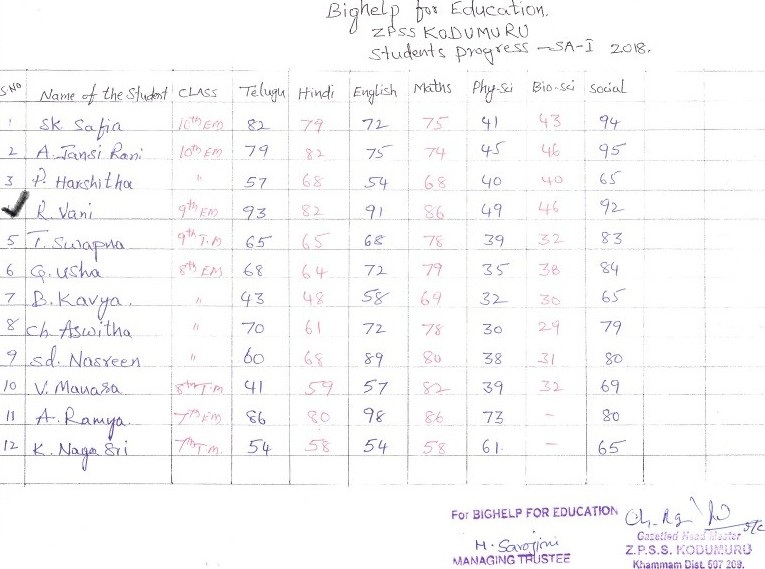 Bighelp for Education.
ZPSS KODUMURU
Students progress -SA-I 2018.
S.NO Name of the Student CLASS Telugu Hindi English Maths Phy-sci Bio-sci Social
1 SK. Safia 10th EM 82 79 72 75 41 43 94
2 A. Jansi Rani 10th EM 79 82 75 74 45 46 95
3 P. Harshitha " 57 68 54 68 40 40 65
✓ R. Vani 9th EM 93 82 91 86 49 46 92
5 T. Swapna 9th T.M 65 65 68 78 39 32 83
6 G. Usha 8th EM 68 64 72 79 35 38 84
7 B. Kavya. " 43 48 58 69 32 30 65
8 Ch. Aswitha " 70 61 72 78 30 29 79
9 Sd. Nasreen " 60 68 89 80 38 31 80
10 V. Manasa 8th T.M 41 59 57 82 39 32 69
11 A. Ramya. 7th EM 86 80 98 86 73 - 80
12 K. Naga Sri 7th T.M. 54 58 54 58 61. - 65
For BIGHELP FOR EDUCATION
M. Sarojini
MANAGING TRUSTEE
Gazetted Head Master
Z.P.S.S. KODUMURU
Khammam Dist. 507 209.